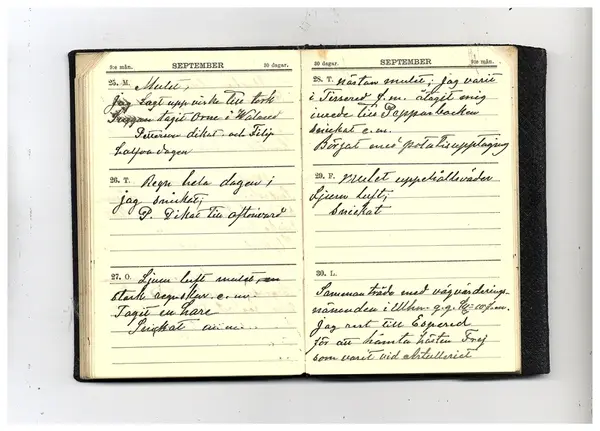 9:e mån. SEPTEMBER 30 dagar.
25. M. Mulet,
jag lagt upp virke till tork
tagit Orne i
Petterson dikat och Filip
halfva dagen
26. T. Regn hela dagen;
jag snickat;
P. Dikat till aftonvard
27. O. Ljum luft mulet, en
stark regnskur e.m.
Tagit en hare
Snickat
30 dagar. SEPTEMBER 9:e mån.
28. T. Nästan mulet; jag varit
i f.m. åtagit mig
inrede till Pepparbacken
snickat e.m.
Börjat med potatisupptagning
29. F. Mulet uppehållsväder
Ljum luft;
snickat
30. L.
Sammanträde med vägvärderings-
nämnden i f.m.
Jag rest till Espered
för att hämta hästen Frej
som varit vid Artilleriet